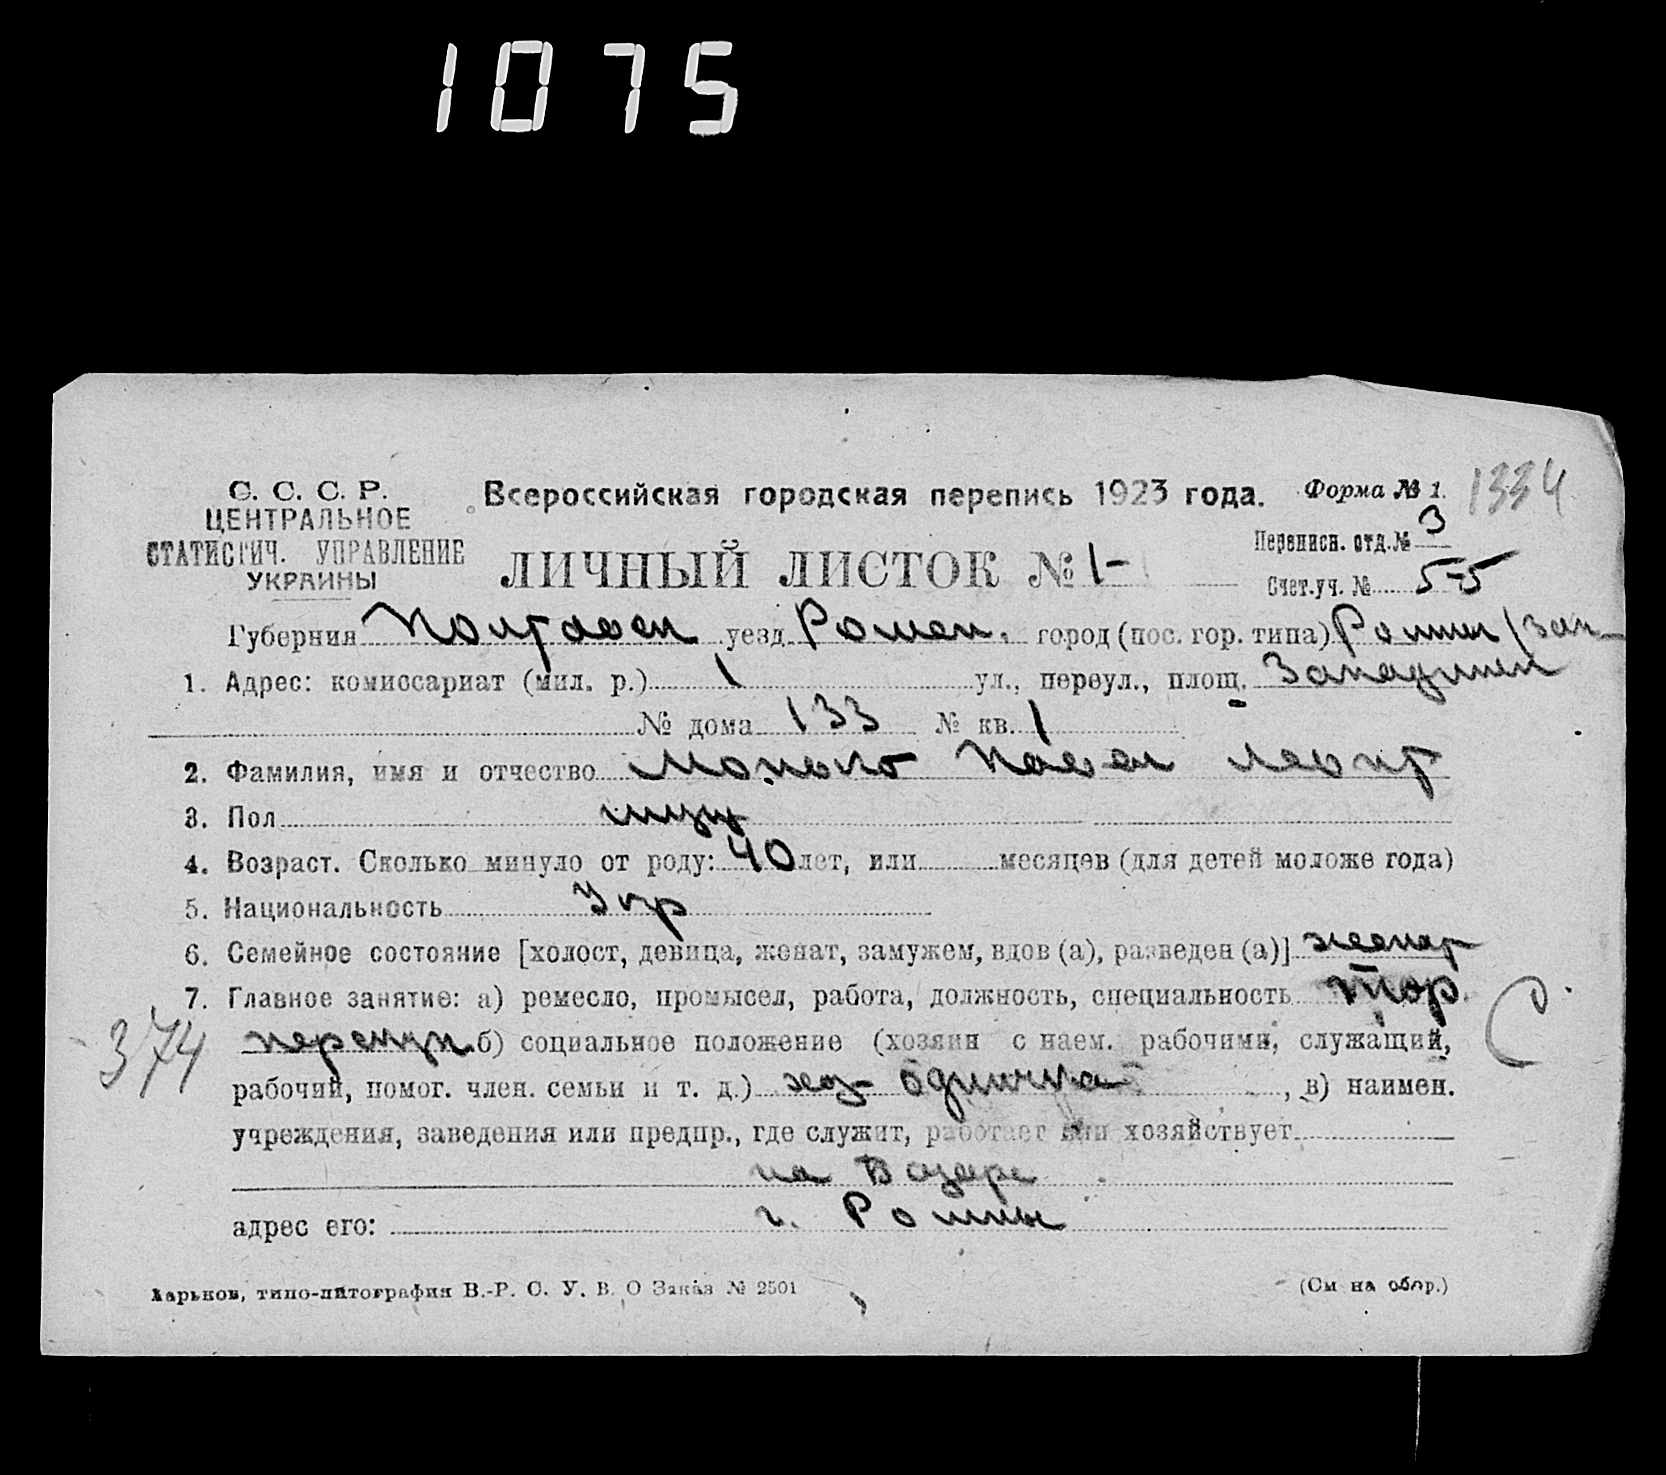 1075
С. С. С. Р.
ЦЕНТРАЛЬНОЕ
СТАТИСТИЧ. УПРАВЛЕНИЕ
УКРАИНЫ
Всероссийская городская перепись 1923 года.
Форма № 1. 1334
Переписн. отд. № 3
ЛИЧНЫЙ ЛИСТОК № 1-
Счет.уч. № 5-5
Губерния Полтавск уезд Ромен. город (пос. гор. типа) Ромны
1. Адрес: комиссариат (мил. р.) 1 ул., переул., площ.
№ дома 133 № кв. 1
2. Фамилия, имя и отчество Павел Леонт
3. Пол муж
4. Возраст. Сколько минуло от роду: 40 лет, или месяцев (для детей моложе года)
5. Национальность Укр
6. Семейное состояние [холост, девица, женат, замужем, вдов (а), разведен (а)] женат
7. Главное занятие: а) ремесло, промысел, работа, должность, специальность Тор.
374 перекуп. б) социальное положение (хозяин с наем. рабочими, служащий,
рабочий, помог. член. семьи и т. д.) хоз одиночка, в) наимен.
учреждения, заведения или предпр., где служит, работает или хозяйствует
на Базаре
адрес его: г. Ромны
Харьков, типо-литография В.-Р. С. У. В. О Заказ № 2501
(См на обор.)